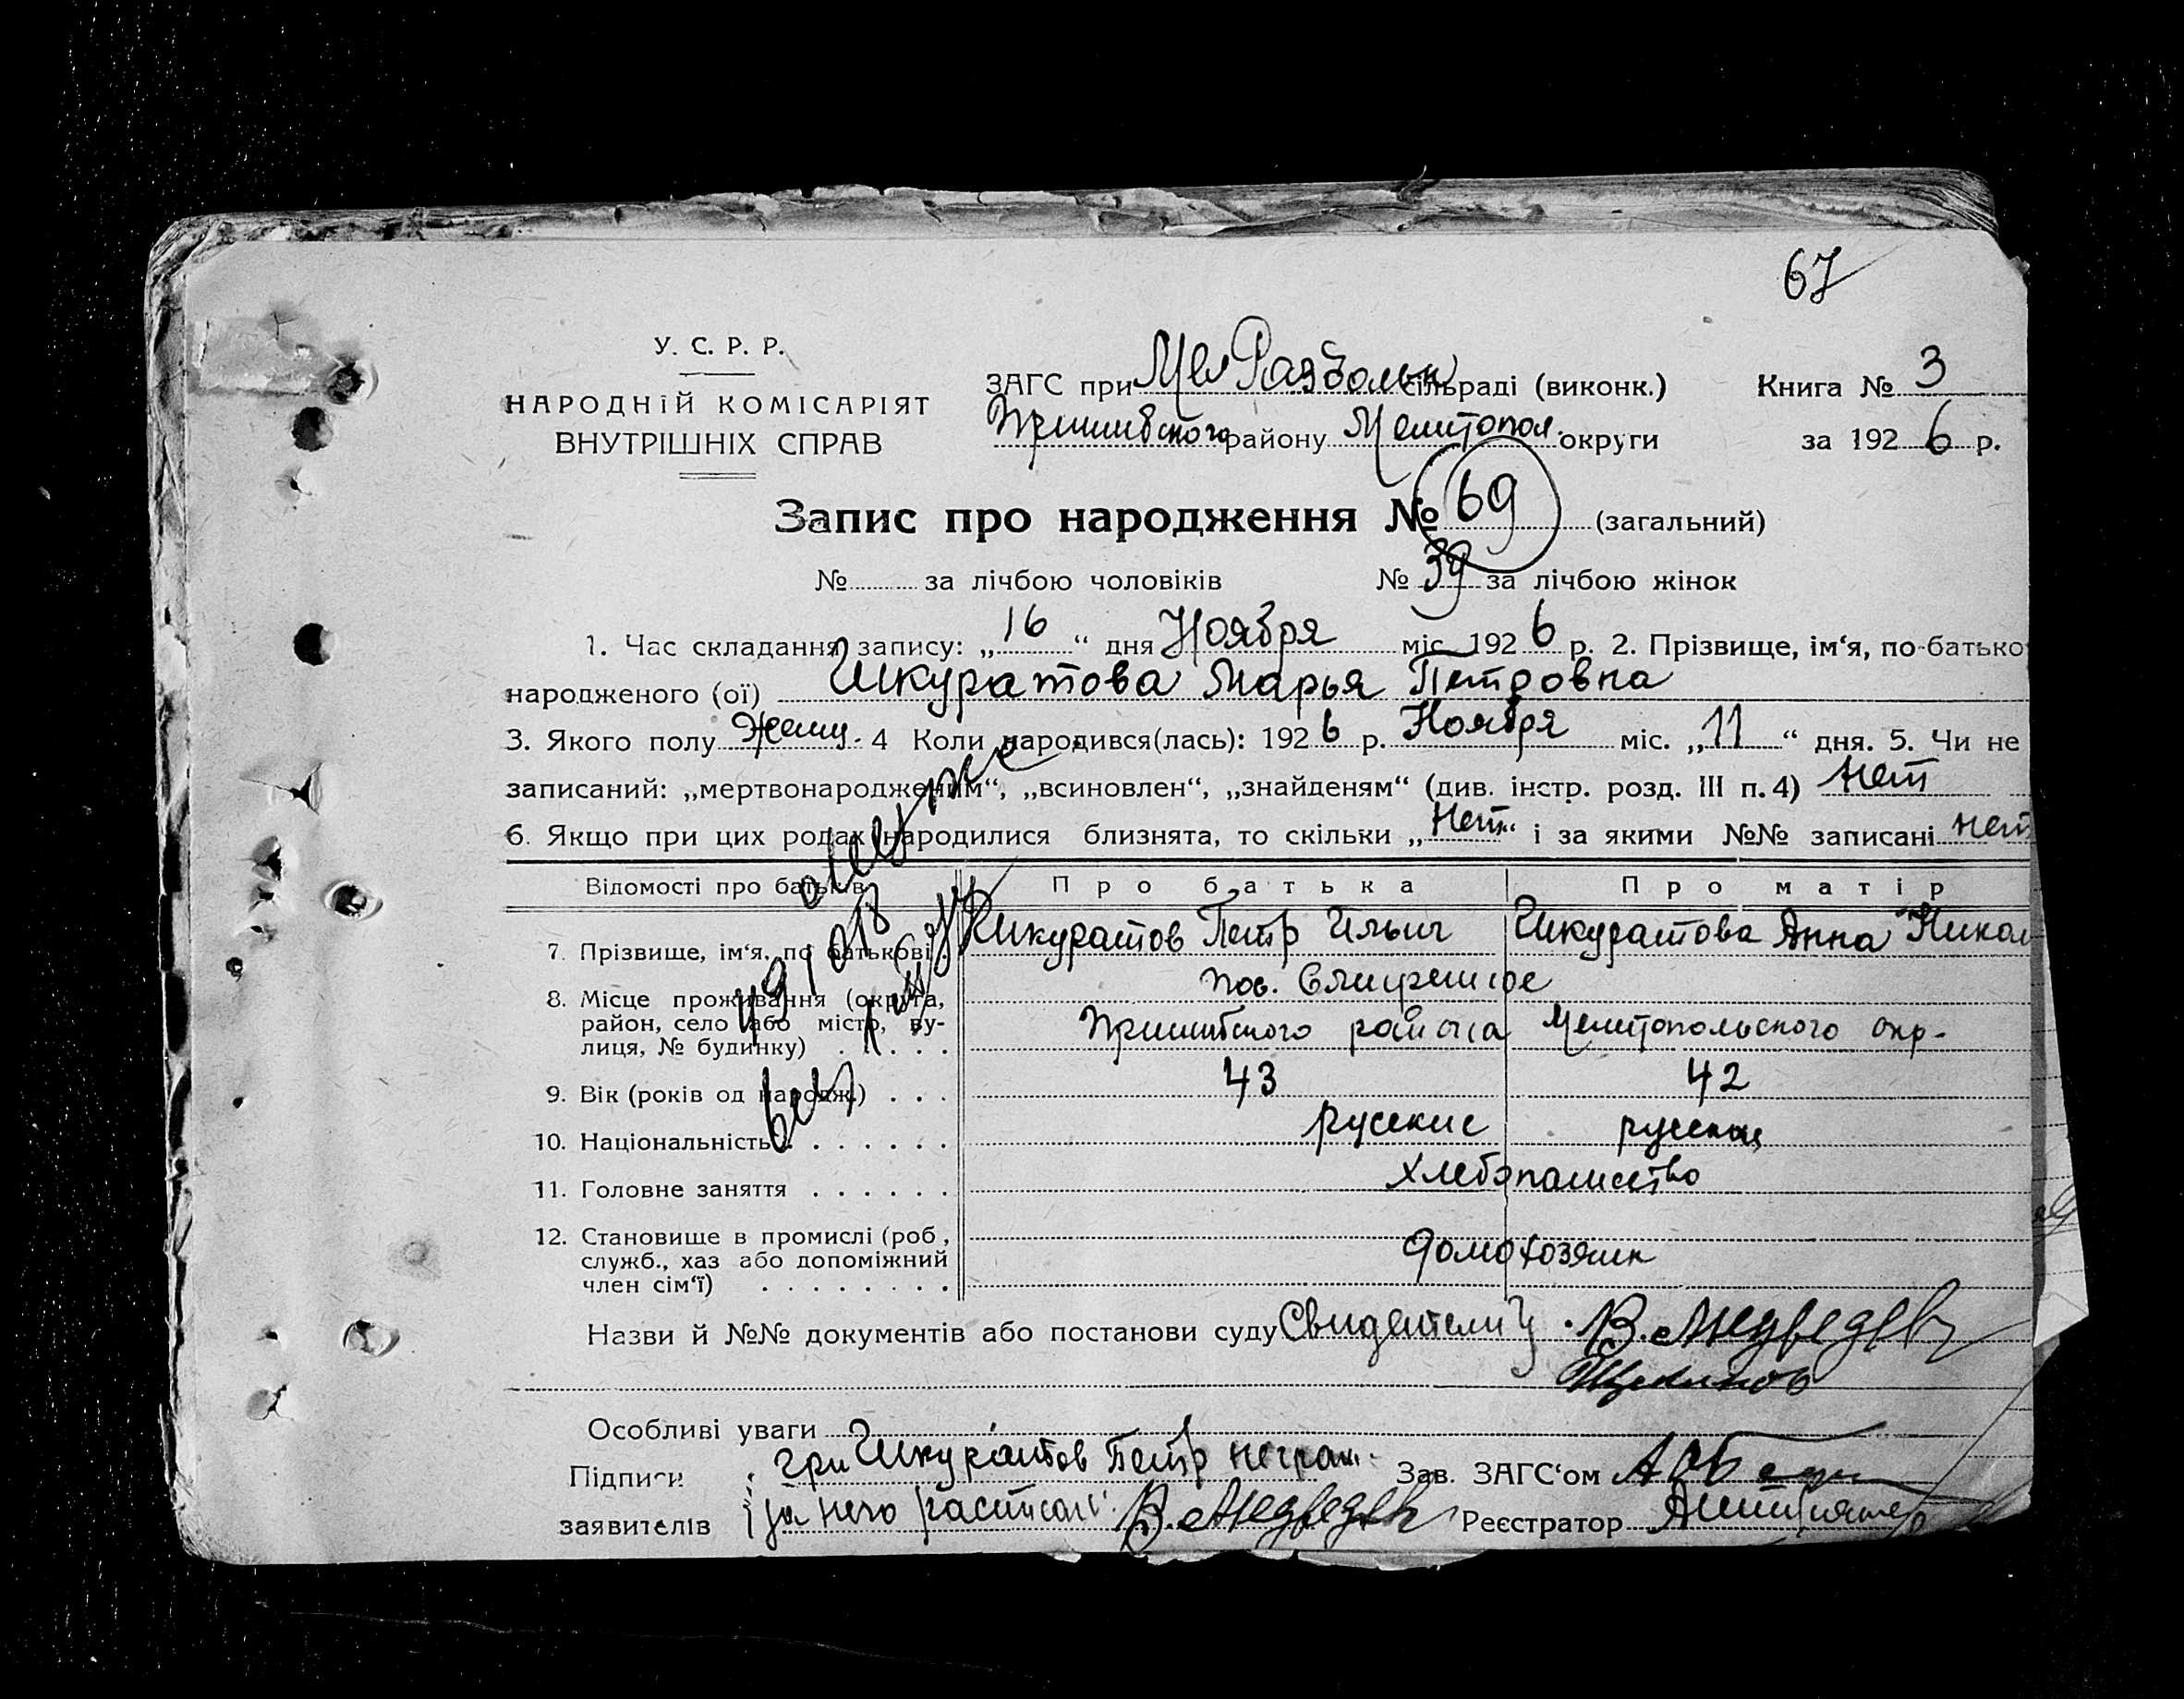 67
У. С. Р. Р.
НАРОДНІЙ КОМІСАРІЯТ
ВНУТРІШНІХ СПРАВ
ЗАГС при сільраді (виконк.)
Пришибского району Мелитопол. округи
Книга № 3
за 1926 р.
Запис про народження № 69 (загальний)
№ за лічбою чоловіків № 39 за лічбою жінок
1. Час складання запису: „16“ дня Ноября міс. 1926 р. 2. Прізвище, ім‘я, по-батько
народженого (ої) Шкуратова Марья Петровна
3. Якого полу 4 Коли народився(лась): 1926 р. Ноября міс. „11“ дня. 5. Чи не
записаний: „мертвонародженим“, „всиновлен“, „знайденям“ (див. інстр. розд. III п. 4) Нет
6. Якщо при цих родах народилися близнята, то скільки „Нет“ і за якими №№ записані нет
Відомості про батьків Про батька Про матір
7. Прізвище, ім‘я, по батькові. Шкуратов Петр Ильич Шкуратова Анна Никол
8. Місце проживання (округа, район, село або місто, вулиця, № будинку) пос.
Пришибского района Мелитопольского окр.
9. Вік (років од народж.) 43 42
10. Національність русские русская
11. Головне заняття хлебопашество
12. Становище в промислі (роб, служб., хаз або допоміжний член сім‘ї) домохозяин
Назви й №№ документів або постанови суду Свидетели В. Медведев
Особливі уваги
Підписи гр Шкуратов Петр неграм.
заявителів за него расписал. В. Медведев
Зав. ЗАГС‘ом
Реєстратор